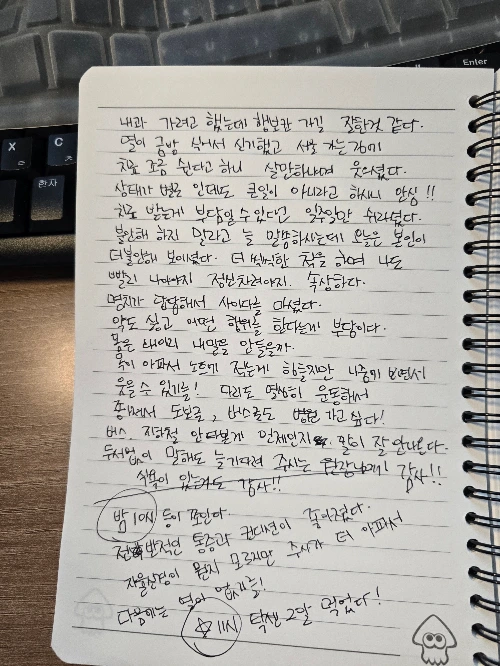 Enter
X ㅌ
C ㅊ
한자
내과 가려고 했는데 행보관 가길 잘한것 같다.
열이 금방 식어서 신기했고 서울 가는김에
치료 조금 쉰다고 하니 살만하냐며 웃으셨다.
상태가 별로 인데도 큰일이 아니라고 하시니 안심!!
치료 받는게 부담일수있다면 일주일만 쉬라셨다.
불안해 하지 말라고 늘 말씀하시는데 오늘은 본인이
더불안해 보이셨다. 더 씩씩한 척을 하며 나도
빨리 나아야지 정신차려야지. 속상하다.
명치가 답답해서 사이다를 마셨다.
약도 싫고 어떤 행위를 한다는게 부담이다.
몸은 왜이리 내말을 안들을까.
목이 아파서 노트에 적는게 힘들지만 나중에 보면서
웃을 수 있기를! 다리도 열심히 운동해서
도보로, 버스로도 병원 가고 싶다!
버스, 지하철 안타본게 언제인지 말이 잘 안나온다.
두서없이 말해도 늘 기다려 주시는 원장님께! 감사!!
식욕이 있는 감사!!
밤 10시 등이 쪼인다.
전반적인 통증과 컨디션이 줄어졌다.
뭔지 모르지만 주사가 더 아파서
다음에는 열이 없기를!
☆ 11시 탁센 2알 먹었다!